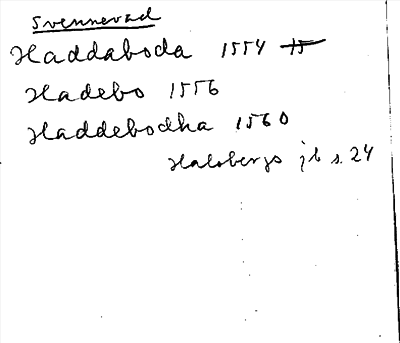 Svennevad
Haddaboda 1554
Hadebo 1556
Haddebodha 1560
Halsbergs jb s. 24